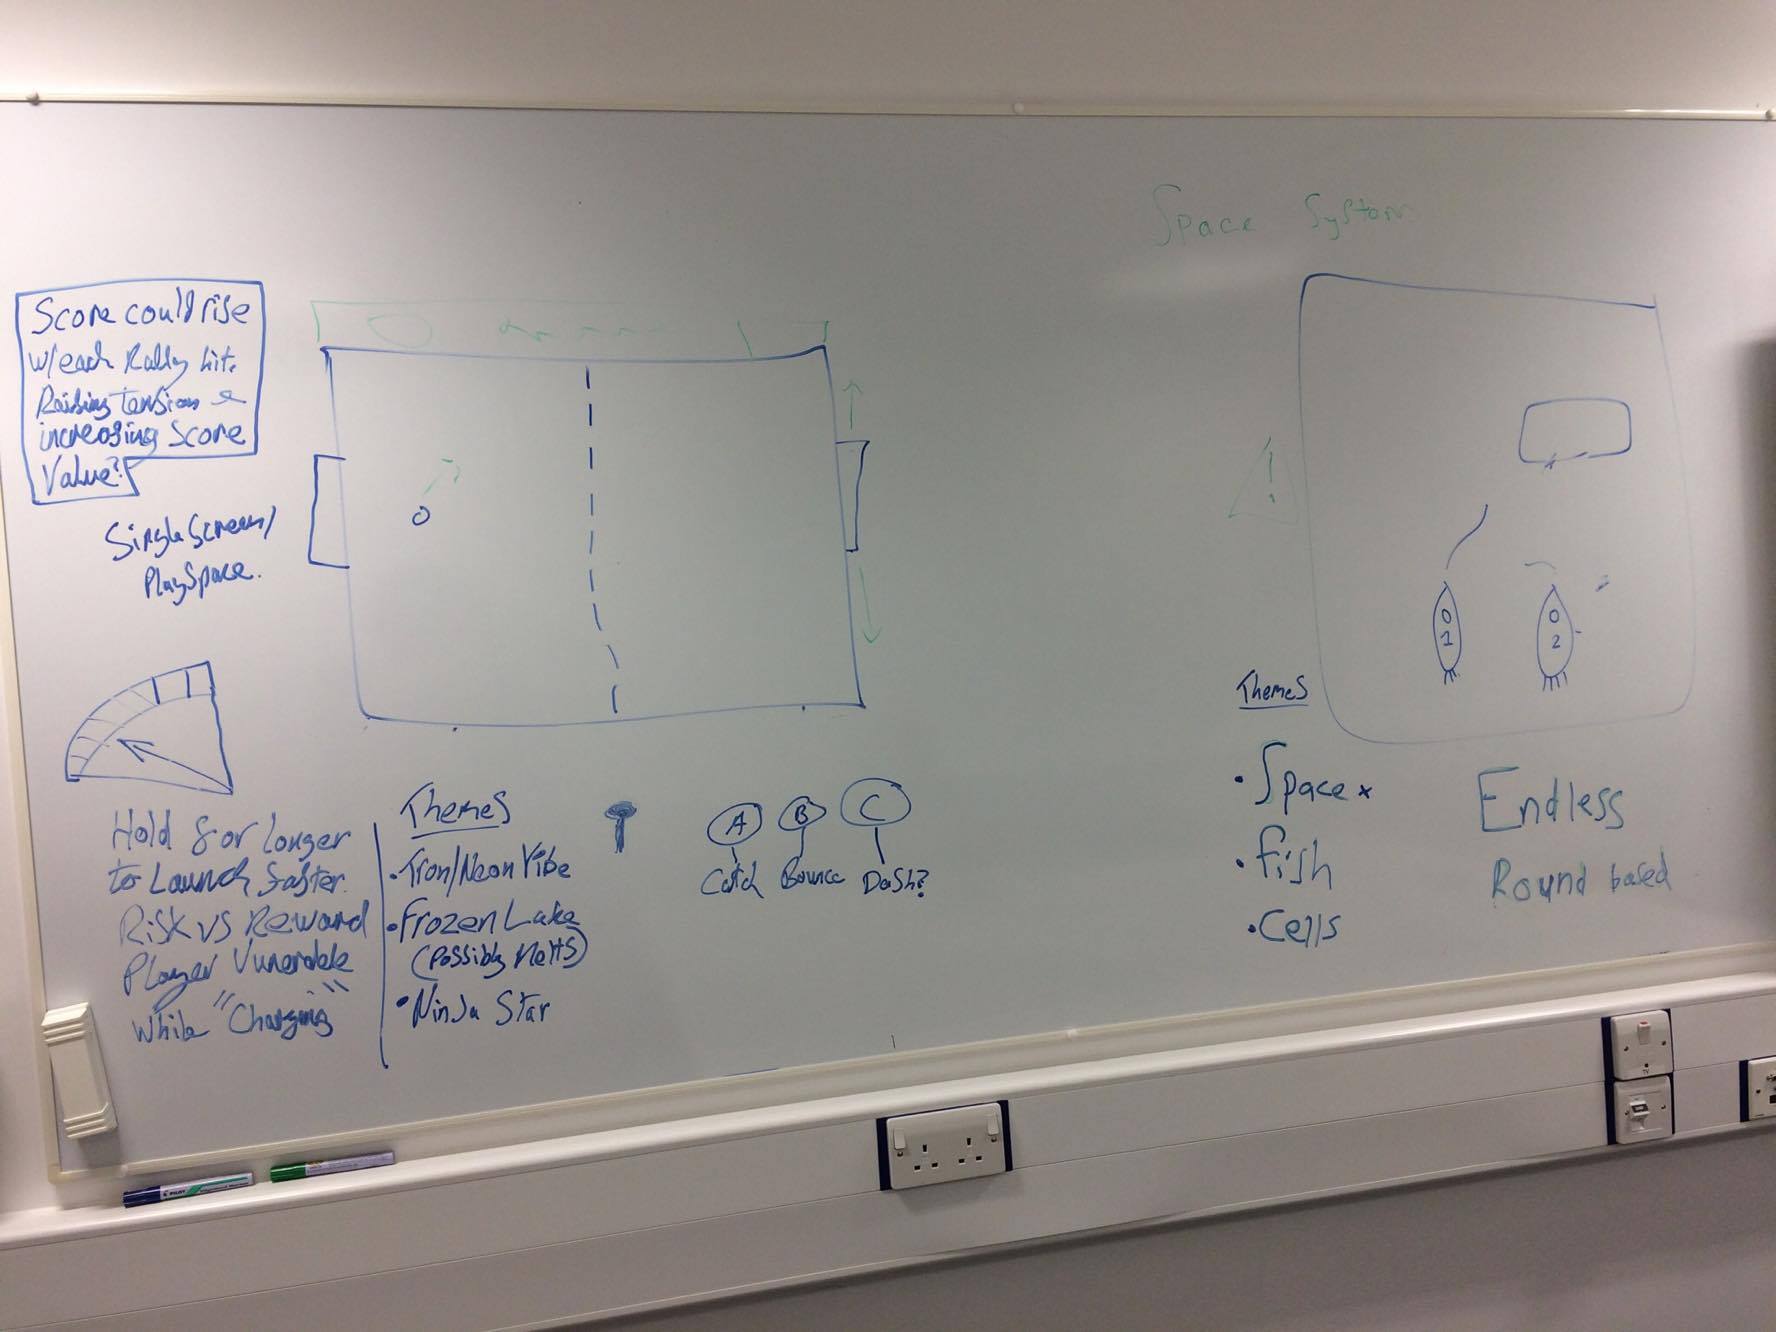 Score could rise
w/each Rally hit.
Raising tension &
increasing Score
Value?
Single Screen/
PlaySpace.
Hold for longer
to Launch faster.
Risk vs Reward
Player Vunerable
While "Charging"
Themes
•Tron/Neon Vibe
•Frozen Lake
(Possibly Melts)
•Ninja Star
A B C
Catch Bounce Dash?
Space System
!
0 0
1 2
Themes
•Space x
•fish
•Cells
Endless
Round based
TV
PILOT